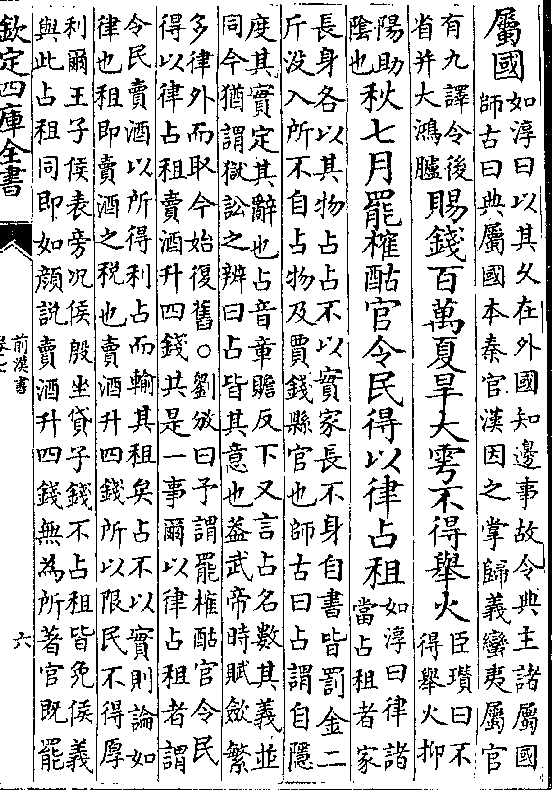 屬國如淳曰以其久在外國知邊事故令典主諸屬國
師古曰典屬國本秦官漢因之掌歸義蠻夷屬官
有九譯令後
省并大鴻臚賜錢百萬夏旱大雩不得舉火臣瓚曰不
得舉火抑
陽助
陰也秋七月罷榷酤官令民得以律占租如淳曰律諸
當占租者家
長身各以其物占占不以實家長不身自書皆罰金二
斤没入所不自占物及賈錢縣官也師古曰占謂自隱
度其實定其辭也占音章贍反下又言占名數其義並
同今猶謂獄訟之辨曰占皆其意也葢武帝時賦斂繁
多律外而取今始復舊○劉攽曰予謂罷榷酤官令民
得以律占租賣酒升四錢共是一事爾以律占租者謂
令民賣酒以所得利占而輸其租矣占不以實則論如
律也租即賣酒之税也賣酒升四錢所以限民不得厚
利爾王子侯表旁况侯殷坐貸子錢不占租皆免侯義
與此占租同即如顔説賣酒升四錢無為所著官既罷
欽定四庫全書
前漢書
卷七
六